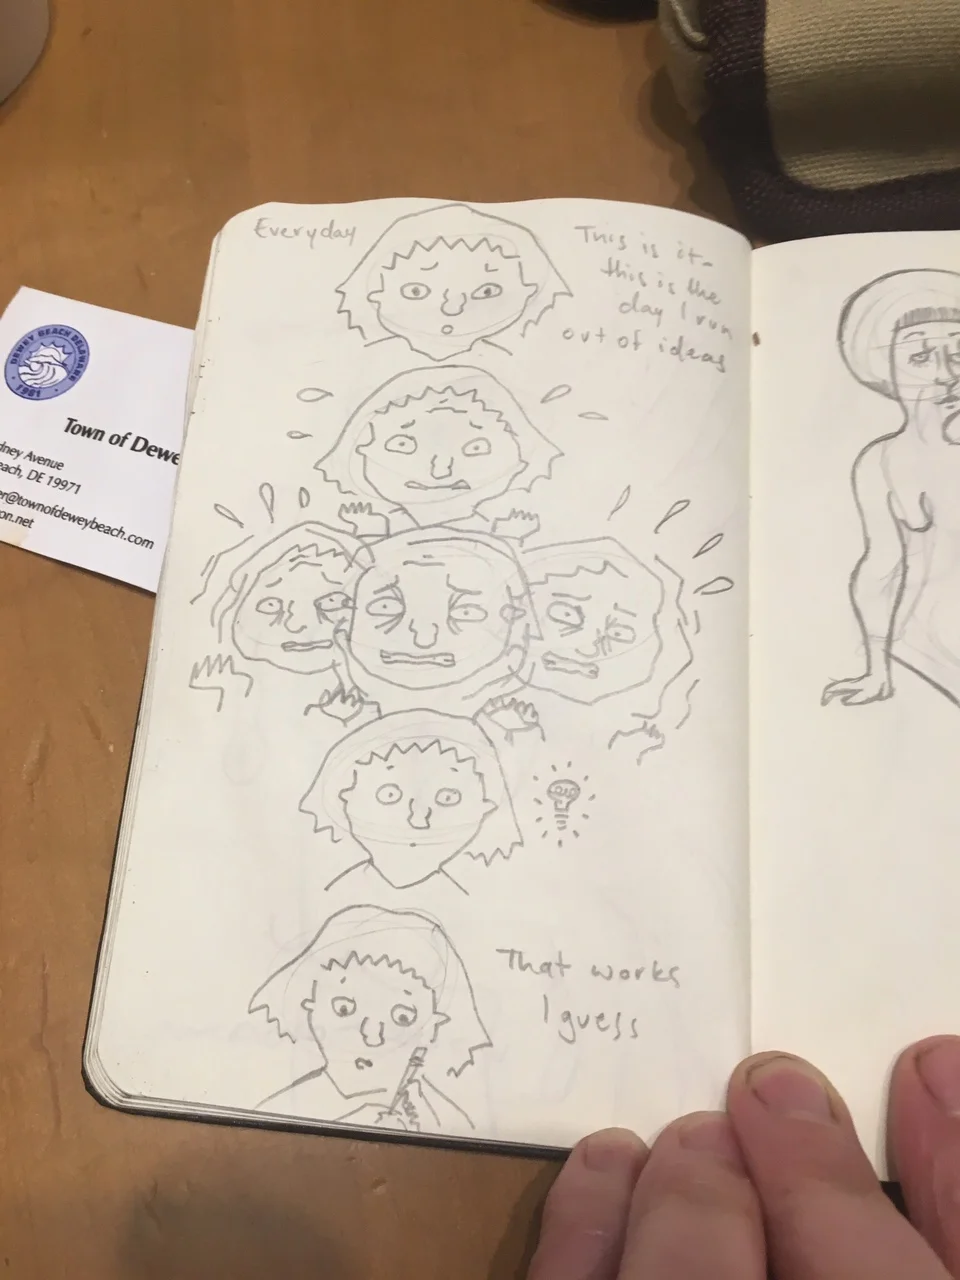 Everyday
This is it-
this is the
day I run
out of ideas
That works
I guess
DEWEY BEACH DELAWARE
1981
Town of Dewe
dney Avenue
each, DE 19971
er@townofdeweybeach.com
on.net